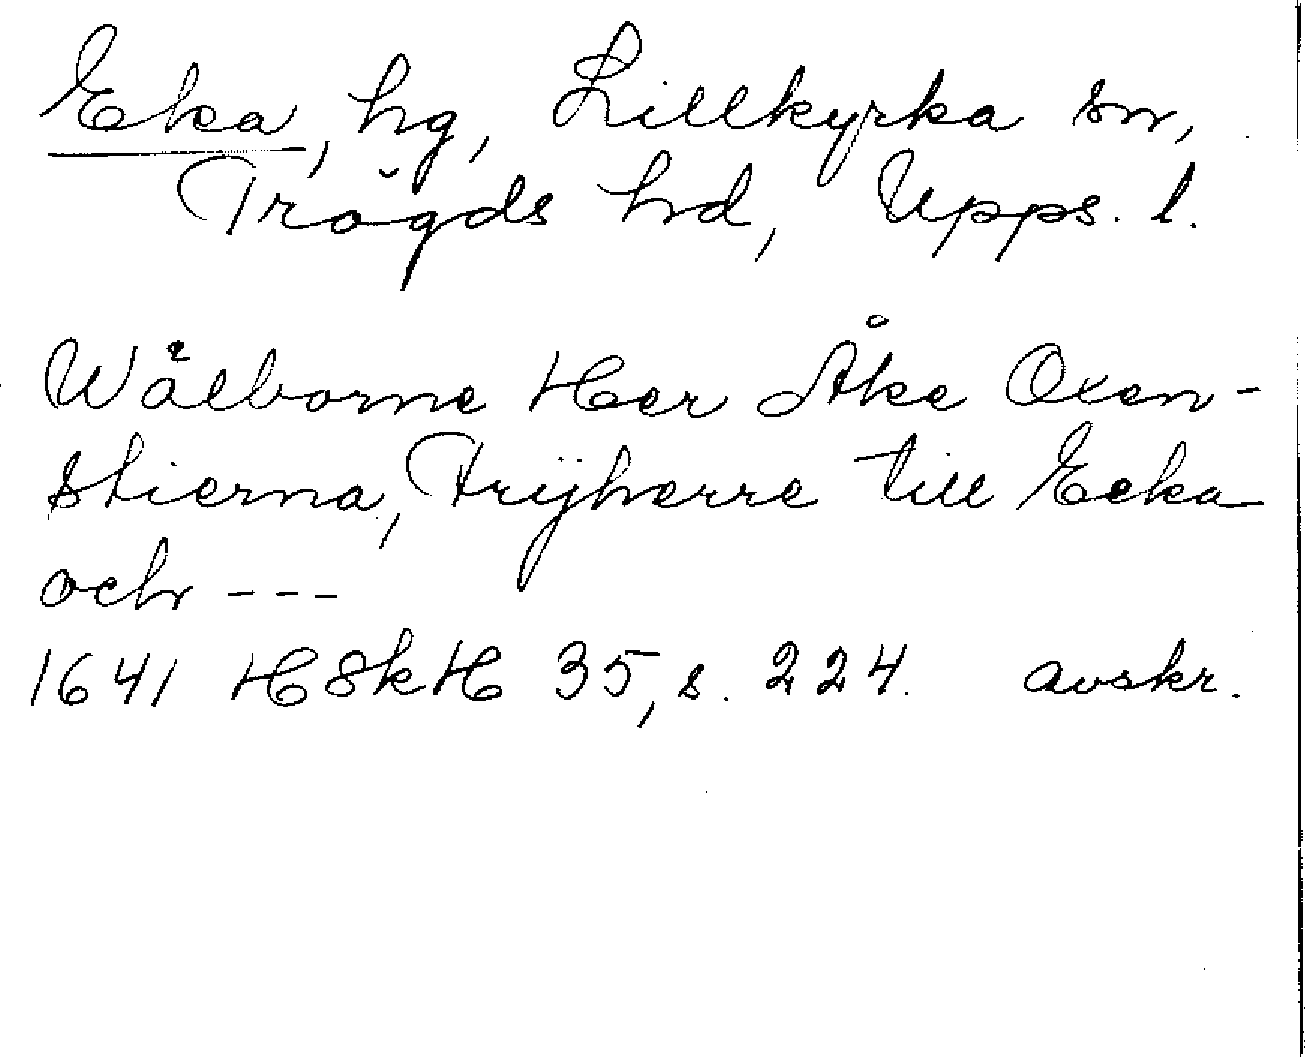 Eka, hg, Lillkyrka sn,
Trögds hd, Upps. l.
Wålborne Her Åke Oxen-
stierna, Frijherre till Ecka
och ---
1641 HSkH 35, s. 224. avskr.